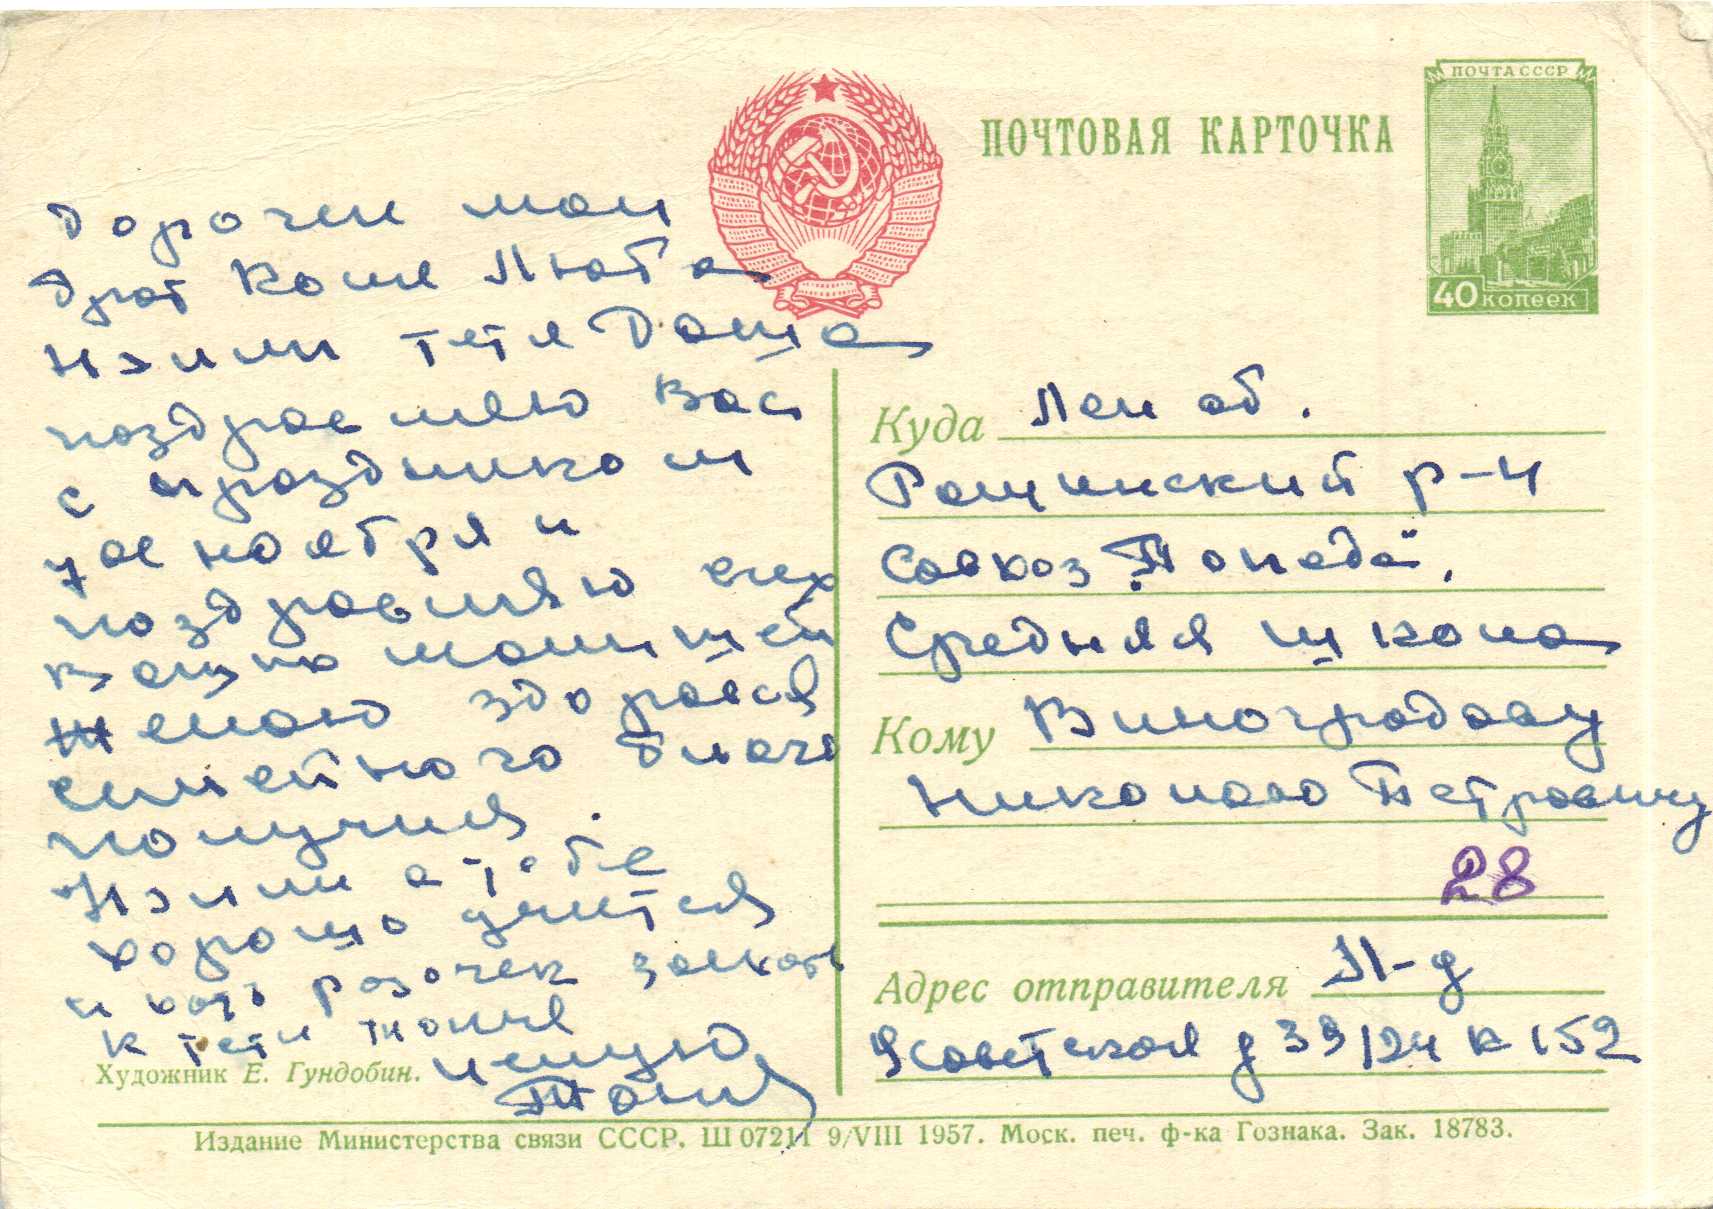 ПОЧТА СССР
ПОЧТОВАЯ КАРТОЧКА
40 КОПЕЕК
Дорогие мои
брат Коля Люба
Нэлли тетя Даша
поздравляю Вас
с праздником
7ое ноября и
поздравляю
здоровья
семейного
получия.
Нэлли а тебе
хорошо учится
и разочек
к тети Тонне
целую
Тоня
Куда Лен об.
Рощинский р-н
Совхоз "Победа",
Средняя школа
Кому Виноградову
Николаю Петровичу
28
Адрес отправителя Л-д
Советская д 39/24 к 152
Художник Е. Гундобин.
Издание Министерства связи СССР. Ш 07211 9/VIII 1957. Моск. печ. ф-ка Гознака. Зак. 18783.